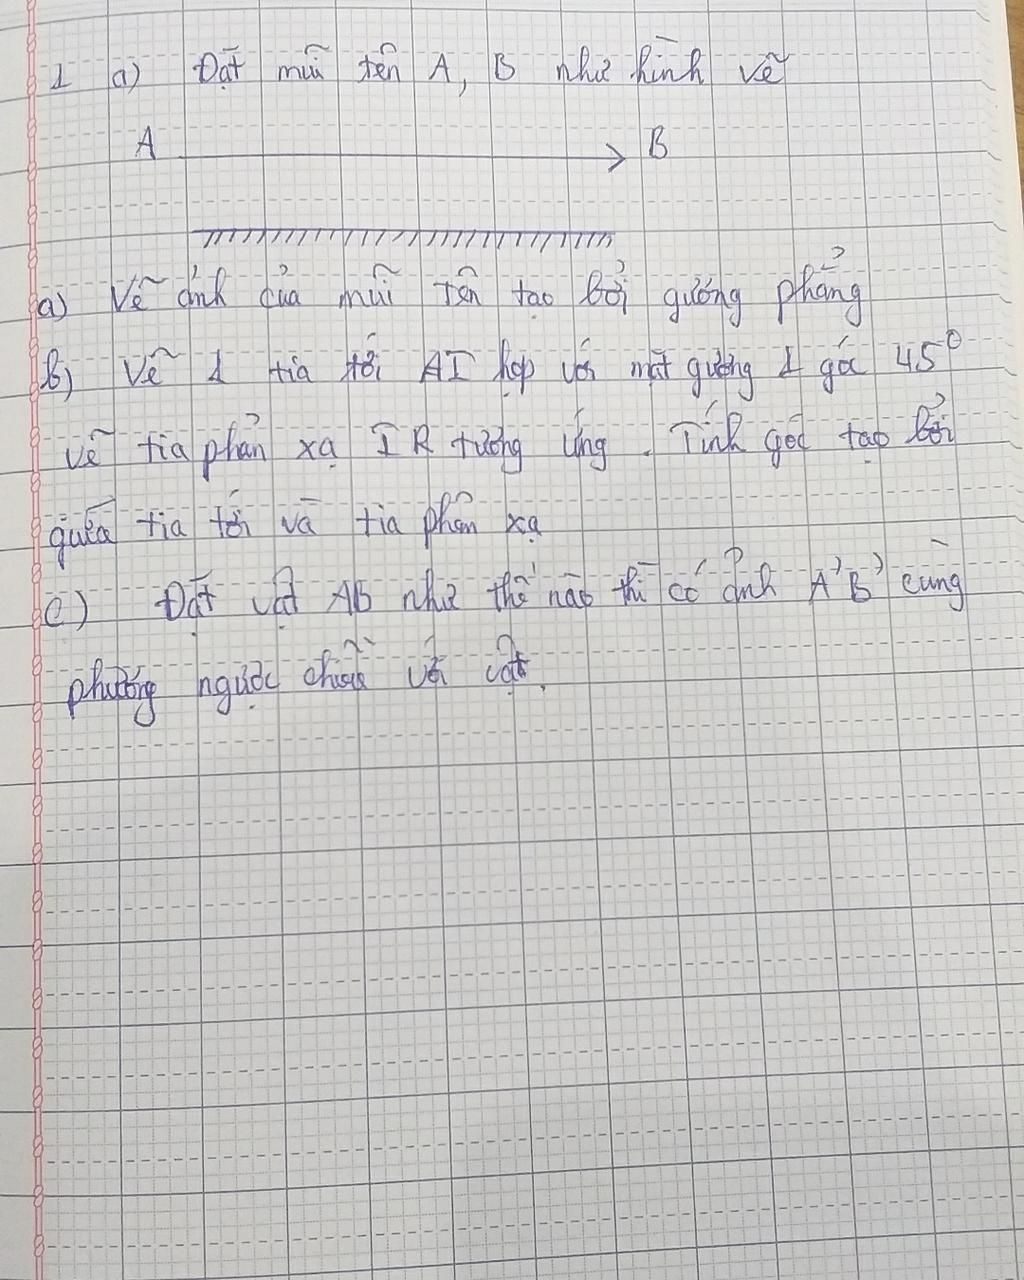 1 a) Đặt mũi tên A, B như hình vẽ
A B
a) Vẽ ảnh của mũi tên tạo bởi gương phẳng
b) Vẽ 1 tia tới AI hợp với mặt gương 1 góc 45°
vẽ tia phản xạ IR tương ứng. Tính góc tạo bởi
giữa tia tới và tia phản xạ
c) Đặt vật AB như thế nào thì có ảnh A'B' cùng
phương ngược chiều với vật.